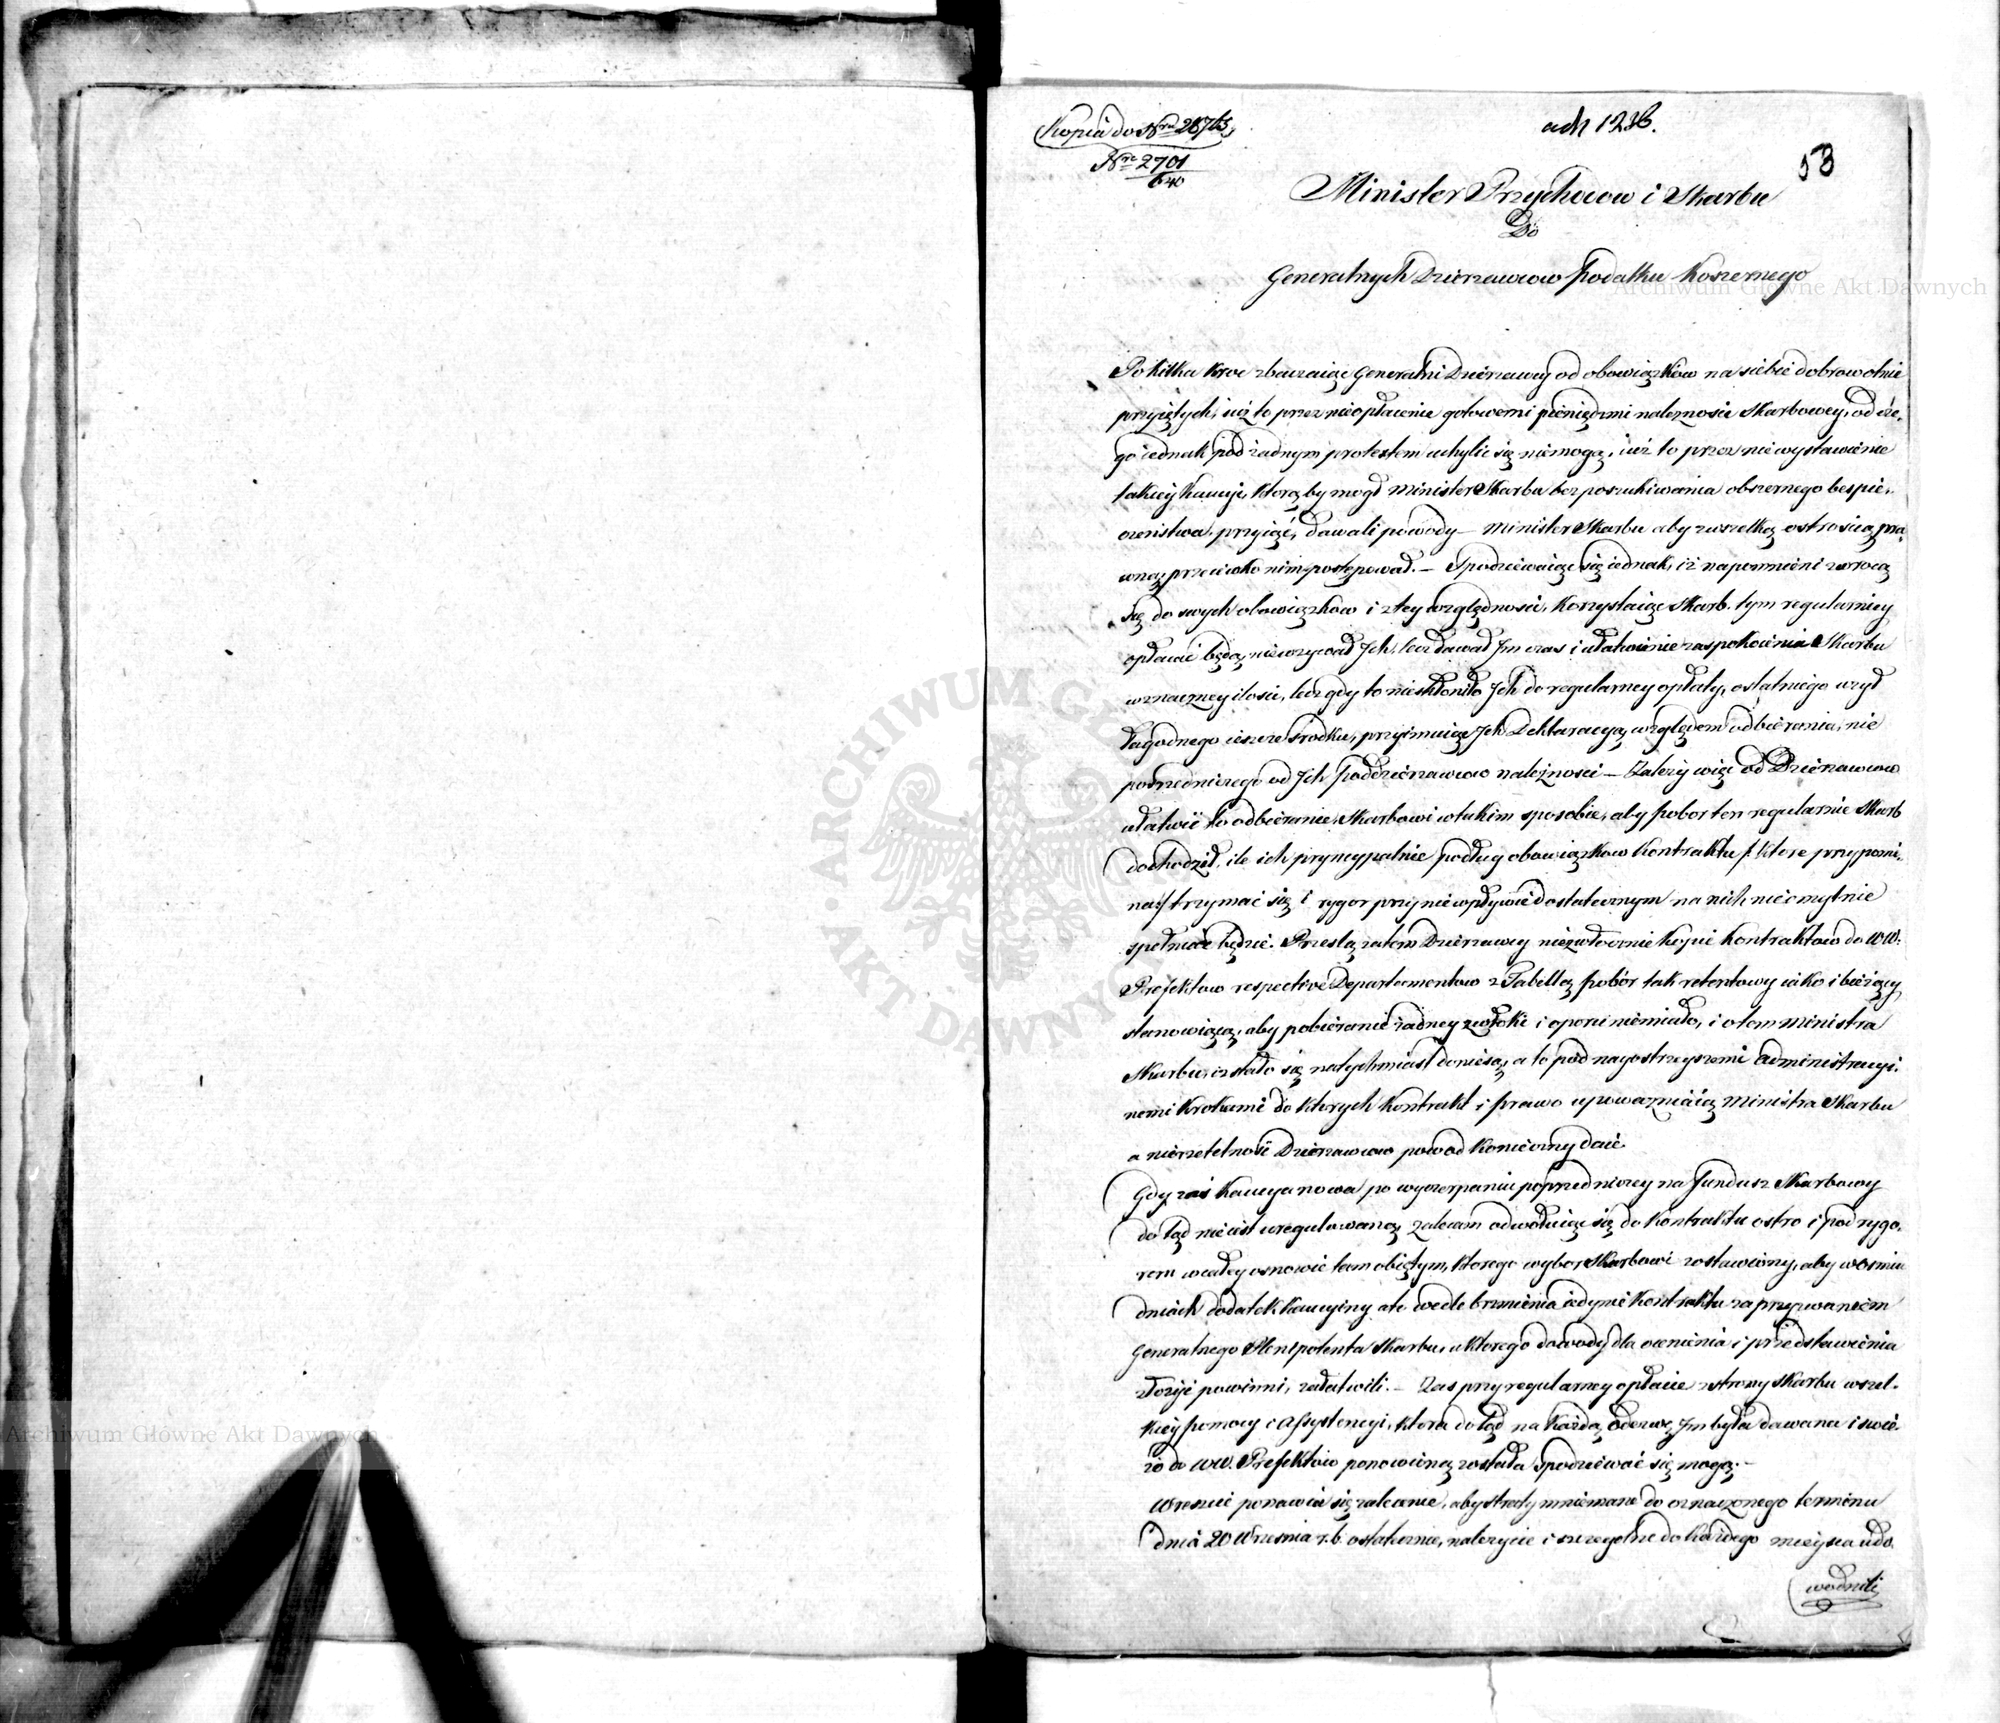 Kopia do Nru 28743
Nro 2701
640
ad N 1236.
53
Minister Przychodow i Skarbu
Do
Generalnych Dzierzawcow Podatku Koszernego
Archiwum Główne Akt Dawnych
Po kilka kroć zbaczaiąc Generalni Dzierzawcy od obowiązków na siebie dobrowolnie
przyiętych, iuż to przez nieopłacenie gotowemi pieniędzmi należnosci Skarbowey, od cze,
go iednak pod żadnym protestem uchylic się niemogą, iuż to przez nie wystawienie
takiey kaucyi, ktorą by mogł Minister Skarbu bez poszukiwania obszernego bespie,,
czenstwa, przyiąć, dawali powody – Minister Skarbu aby z wszelką ostroscią pra,
wną przeciwko nim postępował. – Spodziewaiąc się iednak, iż napomnieni zwrocą
się do swych obowiązkow i z tey względnosci, korzystaiąc Skarb. tym regularniey
opłacać będą, niewzywał Ich, lecz dawał Im czas i ułatwienie zaspokoienia Skarbu
w znaczney ilosci, lecz gdy to niekłoniło Ich do regularney opłaty, ostatniego użył
łagodnego ieszcze srodku, przyimuiąc Ich Deklaracyą względem odbierania, nie
posredniczego od Ich Poddzierzawcow należnosci – Należy więc od Dzierzawcow
ułatwić to odbieranie, Skarbowi w takim sposobie, aby pobor ten regularnie Skarb
dochodził, ile ich pryncypalnie podług obowiązkow Kontraktu /: ktore przypomi,,
na :/ trzymać się i rygor przy niewpływie dostatecznym na nich nieomylnie
spełniać będzie. Prześlą zatem Dzierzawcy niezwłocznie kopie Kontraktow do WW.
Prefektow respective Departamentow z Tabellą pobór tak retentowy iako i bieżący
stanowiącą, aby pobieranie żadney zwłoki i oporu niemiało, i o tem Ministra
Skarbu, iż stało się natychmiast doniosą, a to pod nayostrzeyszemi administracyi,
nemi krokami do ktorych Kontrakt i prawo upoważniaią Ministra Skarbu
a nierzetelność Dzierzawcow powod konieczny daie.
Gdy zaś Kaucya nowa po wyczerpaniu poprzedniczey na fundusz Skarbowy
do tąd nie iest uregulowaną zalecam odwołuiąc się do Kontraktu ostro i pod rygo,
rem w całey osnowie tam obiętym, ktorego wybor Skarbowi zostawiony, aby w osmiu
dniach dodatek kaucyiny ale wedle brzmienia iedynie kontraktu za przyzwaniem
Generalnego Plenipotenta Skarbu, u ktorego dowody dla ocenienia i przedstawienia
złożyć powinni, załatwili. – Zas przy regularney opłacie z strony Skarbu wszel,
kiey pomocy i assystencyi, ktora do tąd na każdą odezwę Im była dawana i swie,
żo do WW. Prefektow ponowioną została spodziewać się mogą. –
Wreszcie ponawia się zalecenie, aby straty mniemane do oznaczonego terminu
dnia 20 Wrzesnia r. b. ostatecznie, należycie i szczegolne do każdego mieysca udo,
wodnili
ARCHIWUM GŁ
AKT DAWNYCH
Archiwum Główne Akt Dawnych